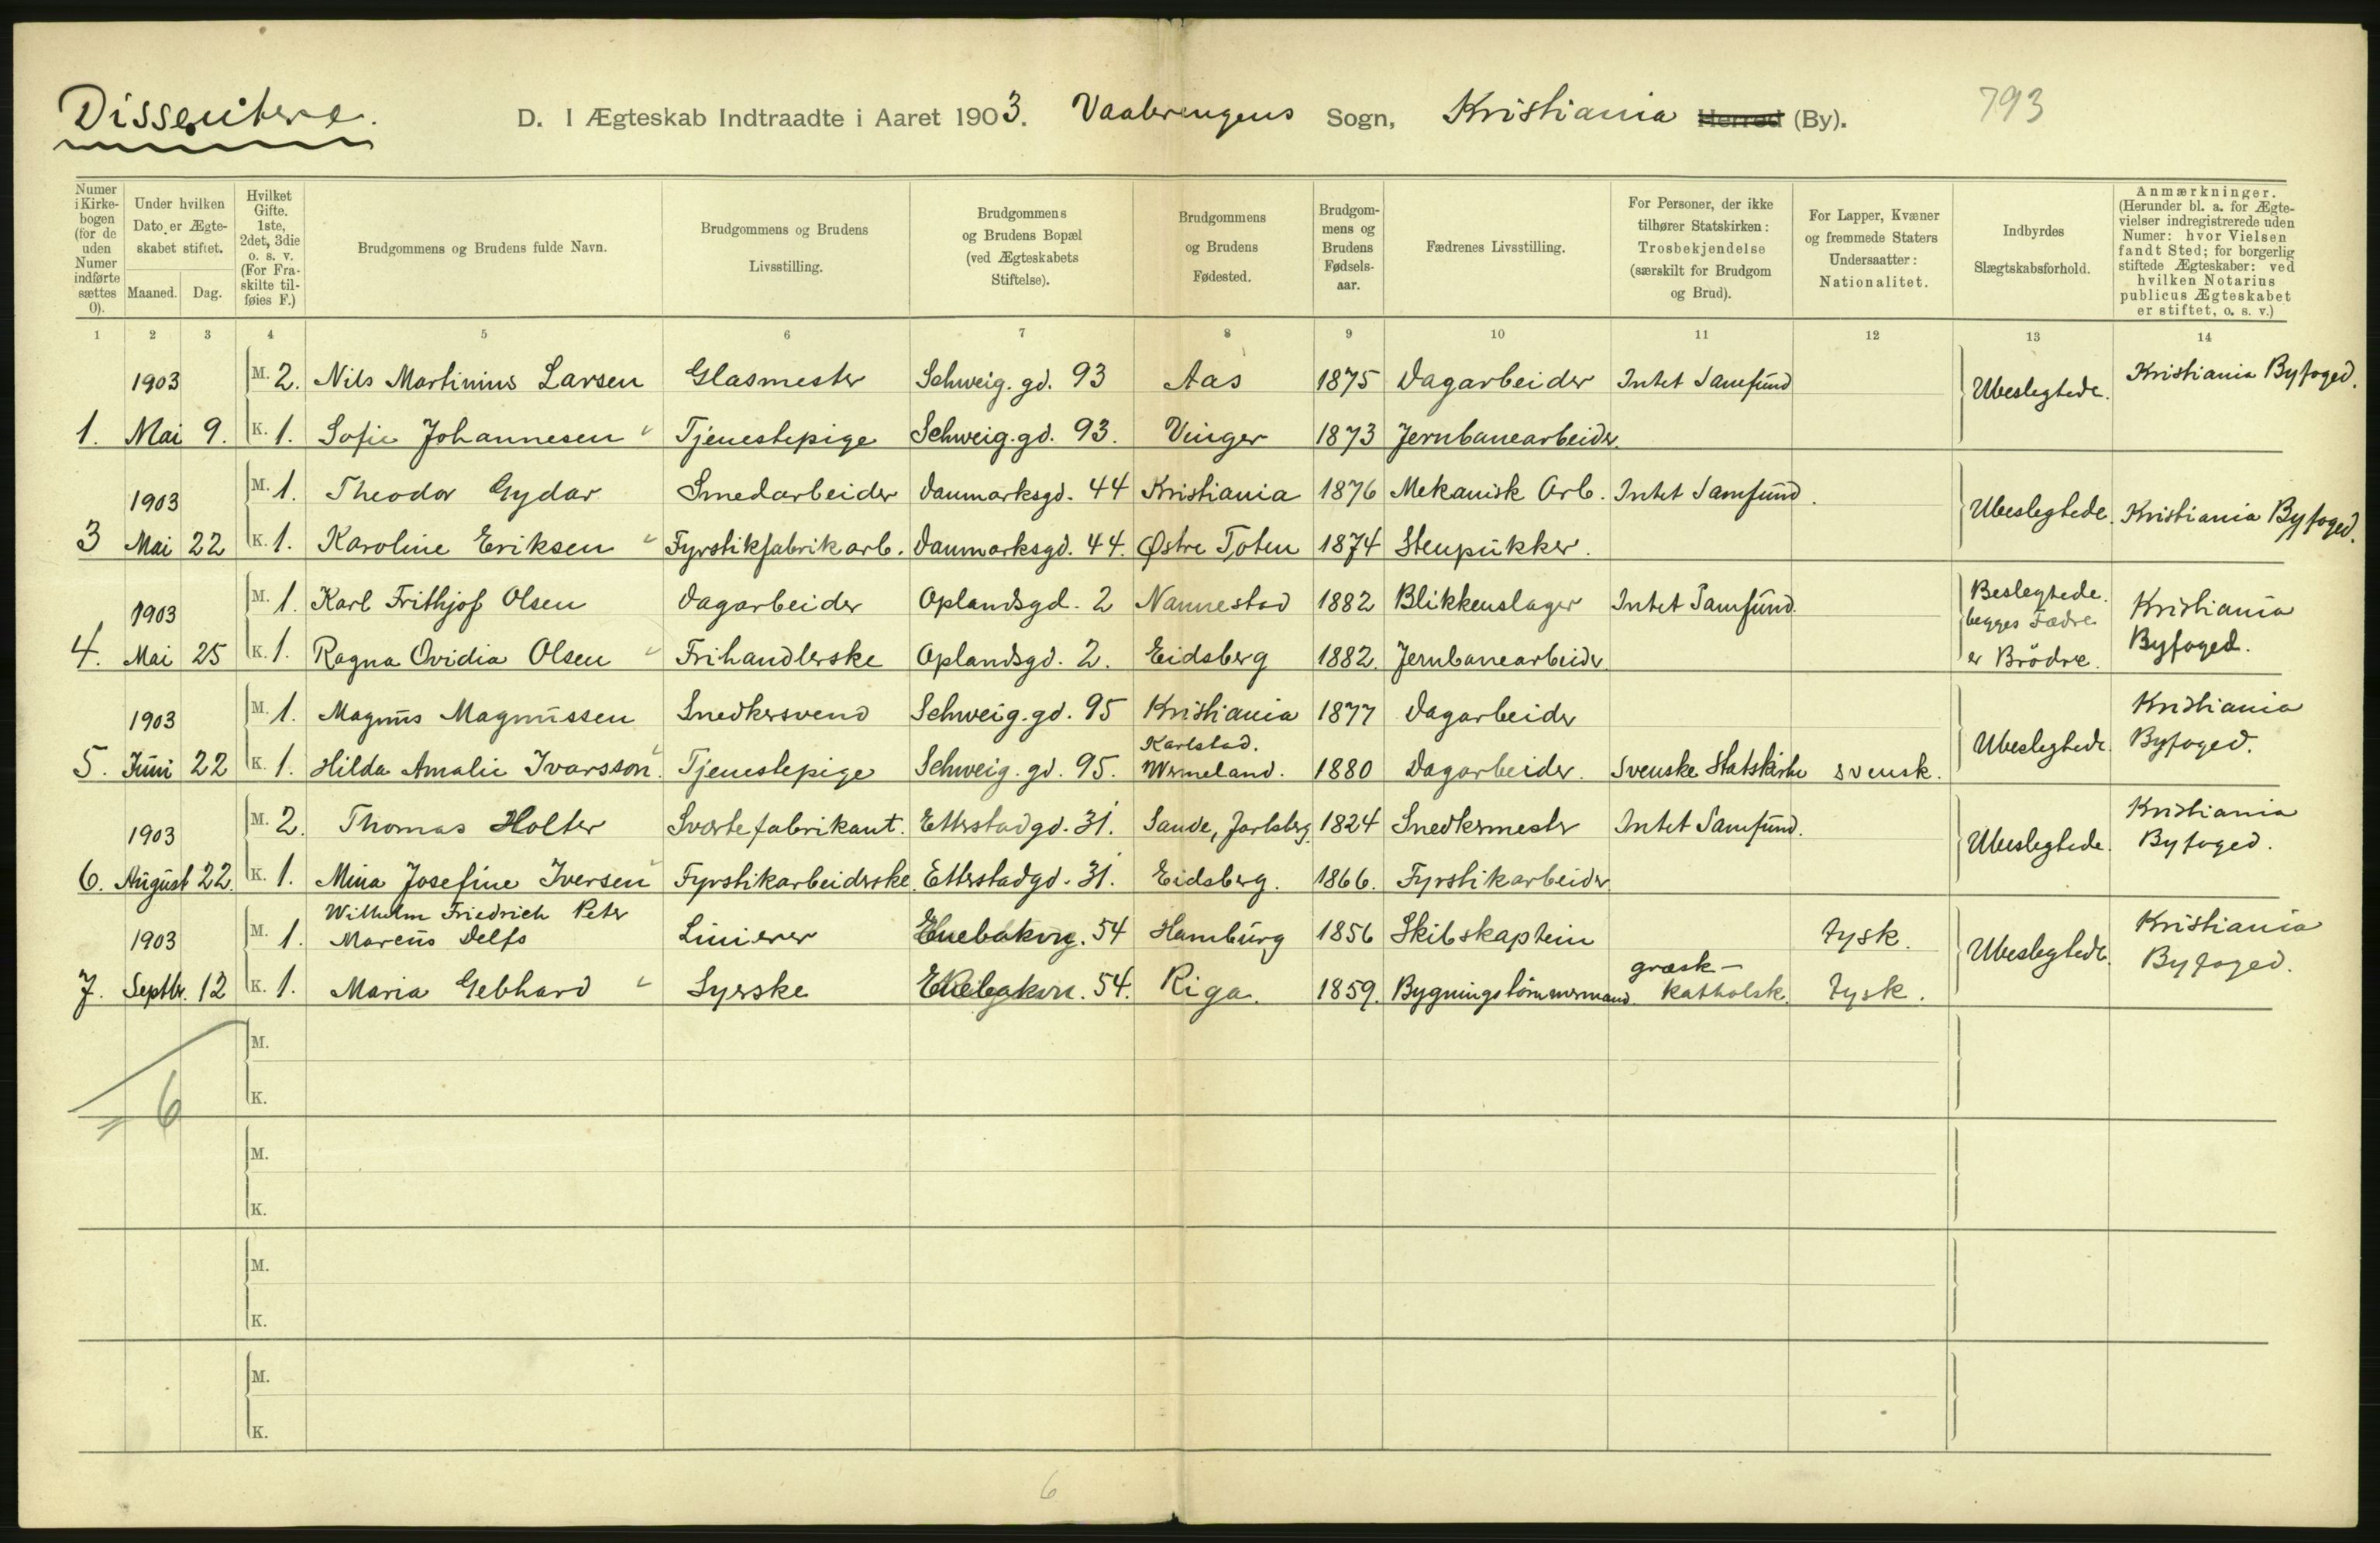 Dissentere.
D. I Ægteskab Indtraadte i Aaret 1903. Vaalerengens Sogn, Kristiania Herred (By).
793
Numer i Kirkebogen (for de uden Numer indførte sættes 0).
Under hvilken Dato er Ægteskabet stiftet.
Maaned. Dag.
Hvilket Gifte. 1ste, 2det, 3die o. s. v. (For Fraskilte tilføies F.)
Brudgommens og Brudens fulde Navn.
Brudgommens og Brudens Livsstilling.
Brudgommens og Brudens Bopæl (ved Ægteskabets Stiftelse).
Brudgommens og Brudens Fødested.
Brudgommens og Brudens Fødselsaar.
Fædrenes Livsstilling.
For Personer, der ikke tilhører Statskirken: Trosbekjendelse (særskilt for Brudgom og Brud).
For Lapper, Kvæner og fremmede Staters Undersaatter: Nationalitet.
Indbyrdes Slægtskabsforhold.
Anmærkninger. (Herunder bl. a. for Ægtevielser indregistrerede uden Numer: hvor Vielsen fandt Sted; for borgerlig stiftede Ægteskaber: ved hvilken Notarius publicus Ægteskabet er stiftet, o. s. v.)
1 2 3 4 5 6 7 8 9 10 11 12 13 14
1903 M. 2. Nils Martinius Larsen Glasmester Schweig. gd. 93 Aas 1875 Dagarbeider Intet Samfund Ubeslegtede. Kristiania Byfoged.
1. Mai 9. K. 1. Sofie Johannesen Tjenestepige Schweig. gd. 93. Vinger 1873 Jernbanearbeider.
1903 M. 1. Theodor Gydar Smedarbeider Danmarksgd. 44 Kristiania 1876 Mekanisk Arb. Intet Samfund. Ubeslegtede. Kristiania Byfoged.
3 Mai 22 K. 1. Karoline Eriksen Fyrstikfabrikarb. Danmarksgd. 44. Østre Toten 1874 Stenpukker.
1903 M. 1. Karl Frithjof Olsen Dagarbeider Oplandsgd. 2 Nannestad 1882 Blikkenslager Intet Samfund. Beslegtede. begges Fædre er Brødre. Kristiania Byfoged.
4. Mai 25 K. 1. Ragna Ovidia Olsen Frihandlerske Oplandsgd. 2. Eidsberg 1882. Jernbanearbeider.
1903 M. 1. Magnus Magnussen Snedkersvend Schweig. gd. 95 Kristiania 1877 Dagarbeider Ubeslegtede. Kristiania Byfoged.
5. Juni 22 K. 1. Hilda Amalie Ivarsson. Tjenestepige Schweig. gd. 95. Karlstad. Wermeland. 1880 Dagarbeider. Svenske Statskirke svensk.
1903 M. 2. Thomas Holter Sværtefabrikant. Etterstadgd. 31. Sande, Jarlsberg. 1824 Snedkermester Intet Samfund. Ubeslegtede. Kristiania Byfoged.
6. August 22. K. 1. Mina Josefine Iversen Fyrstikarbeiderske. Etterstadgd. 31. Eidsberg. 1866. Fyrstikarbeider
1903 M. 1. Wilhelm Friedrich Peter Marcus Delfs Linierer Enebakvg. 54 Hamburg 1856 Skibskaptein tysk. Ubeslegtede. Kristiania Byfoged.
7. Septbr. 12 K. 1. Maria Gebhard Syerske 54. Riga. 1859. Bygningstømmermand. græsk-katholsk. tysk.
M.
K.
= 6
M.
K.
M.
K.
M.
K.
6